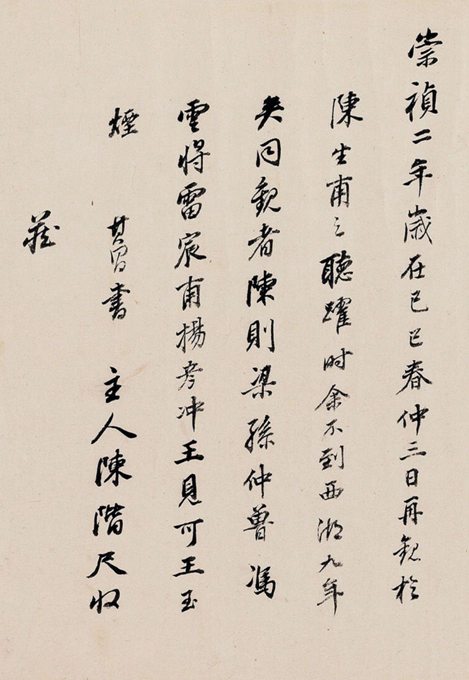 崇禎二年歲在己巳春仲三日再觀於
陳生甫之聽躍時余不到西湖九年
矣同觀者陳則梁孫仲魯馮
雲將雷宸甫楊彥冲王見可王玉
煙 貫書 主人陳階尺收
藏